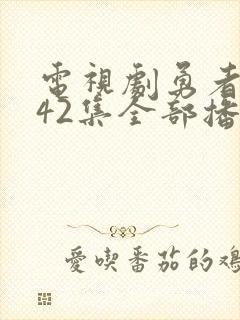 電視劇勇者
42集全部播
愛喫番茄的雞